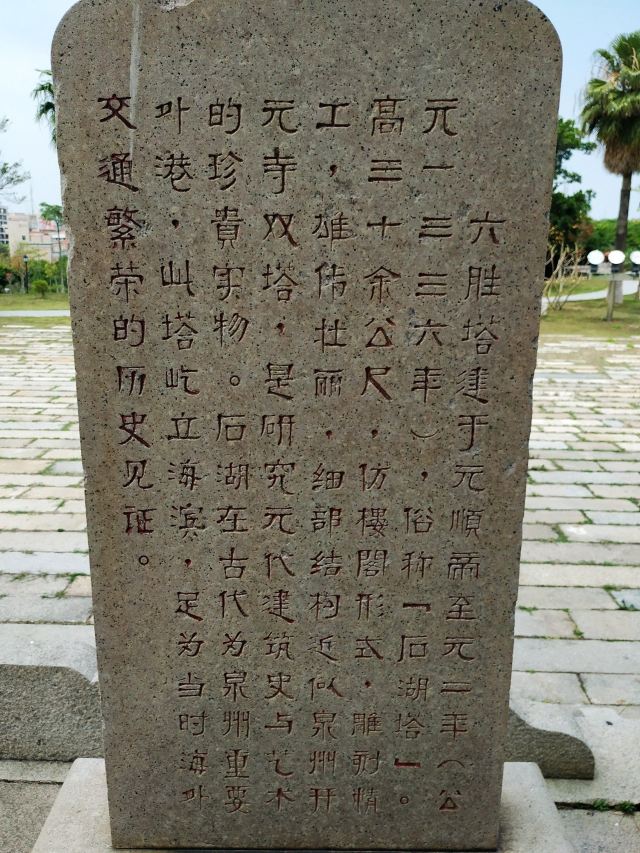 六胜塔建于元順帝至元二年（公
元一三三六年），俗称「石湖塔」。
高三十余公尺，仿樓閣形式，雕刻精
工，雄伟壮丽，细部结构近似泉州开
元寺双塔，是研究元代建筑史与艺术
的珍貴实物。石湖在古代为泉州重要
外港，此塔屹立海滨，足为当时海外
交通繁荣的历史见证。